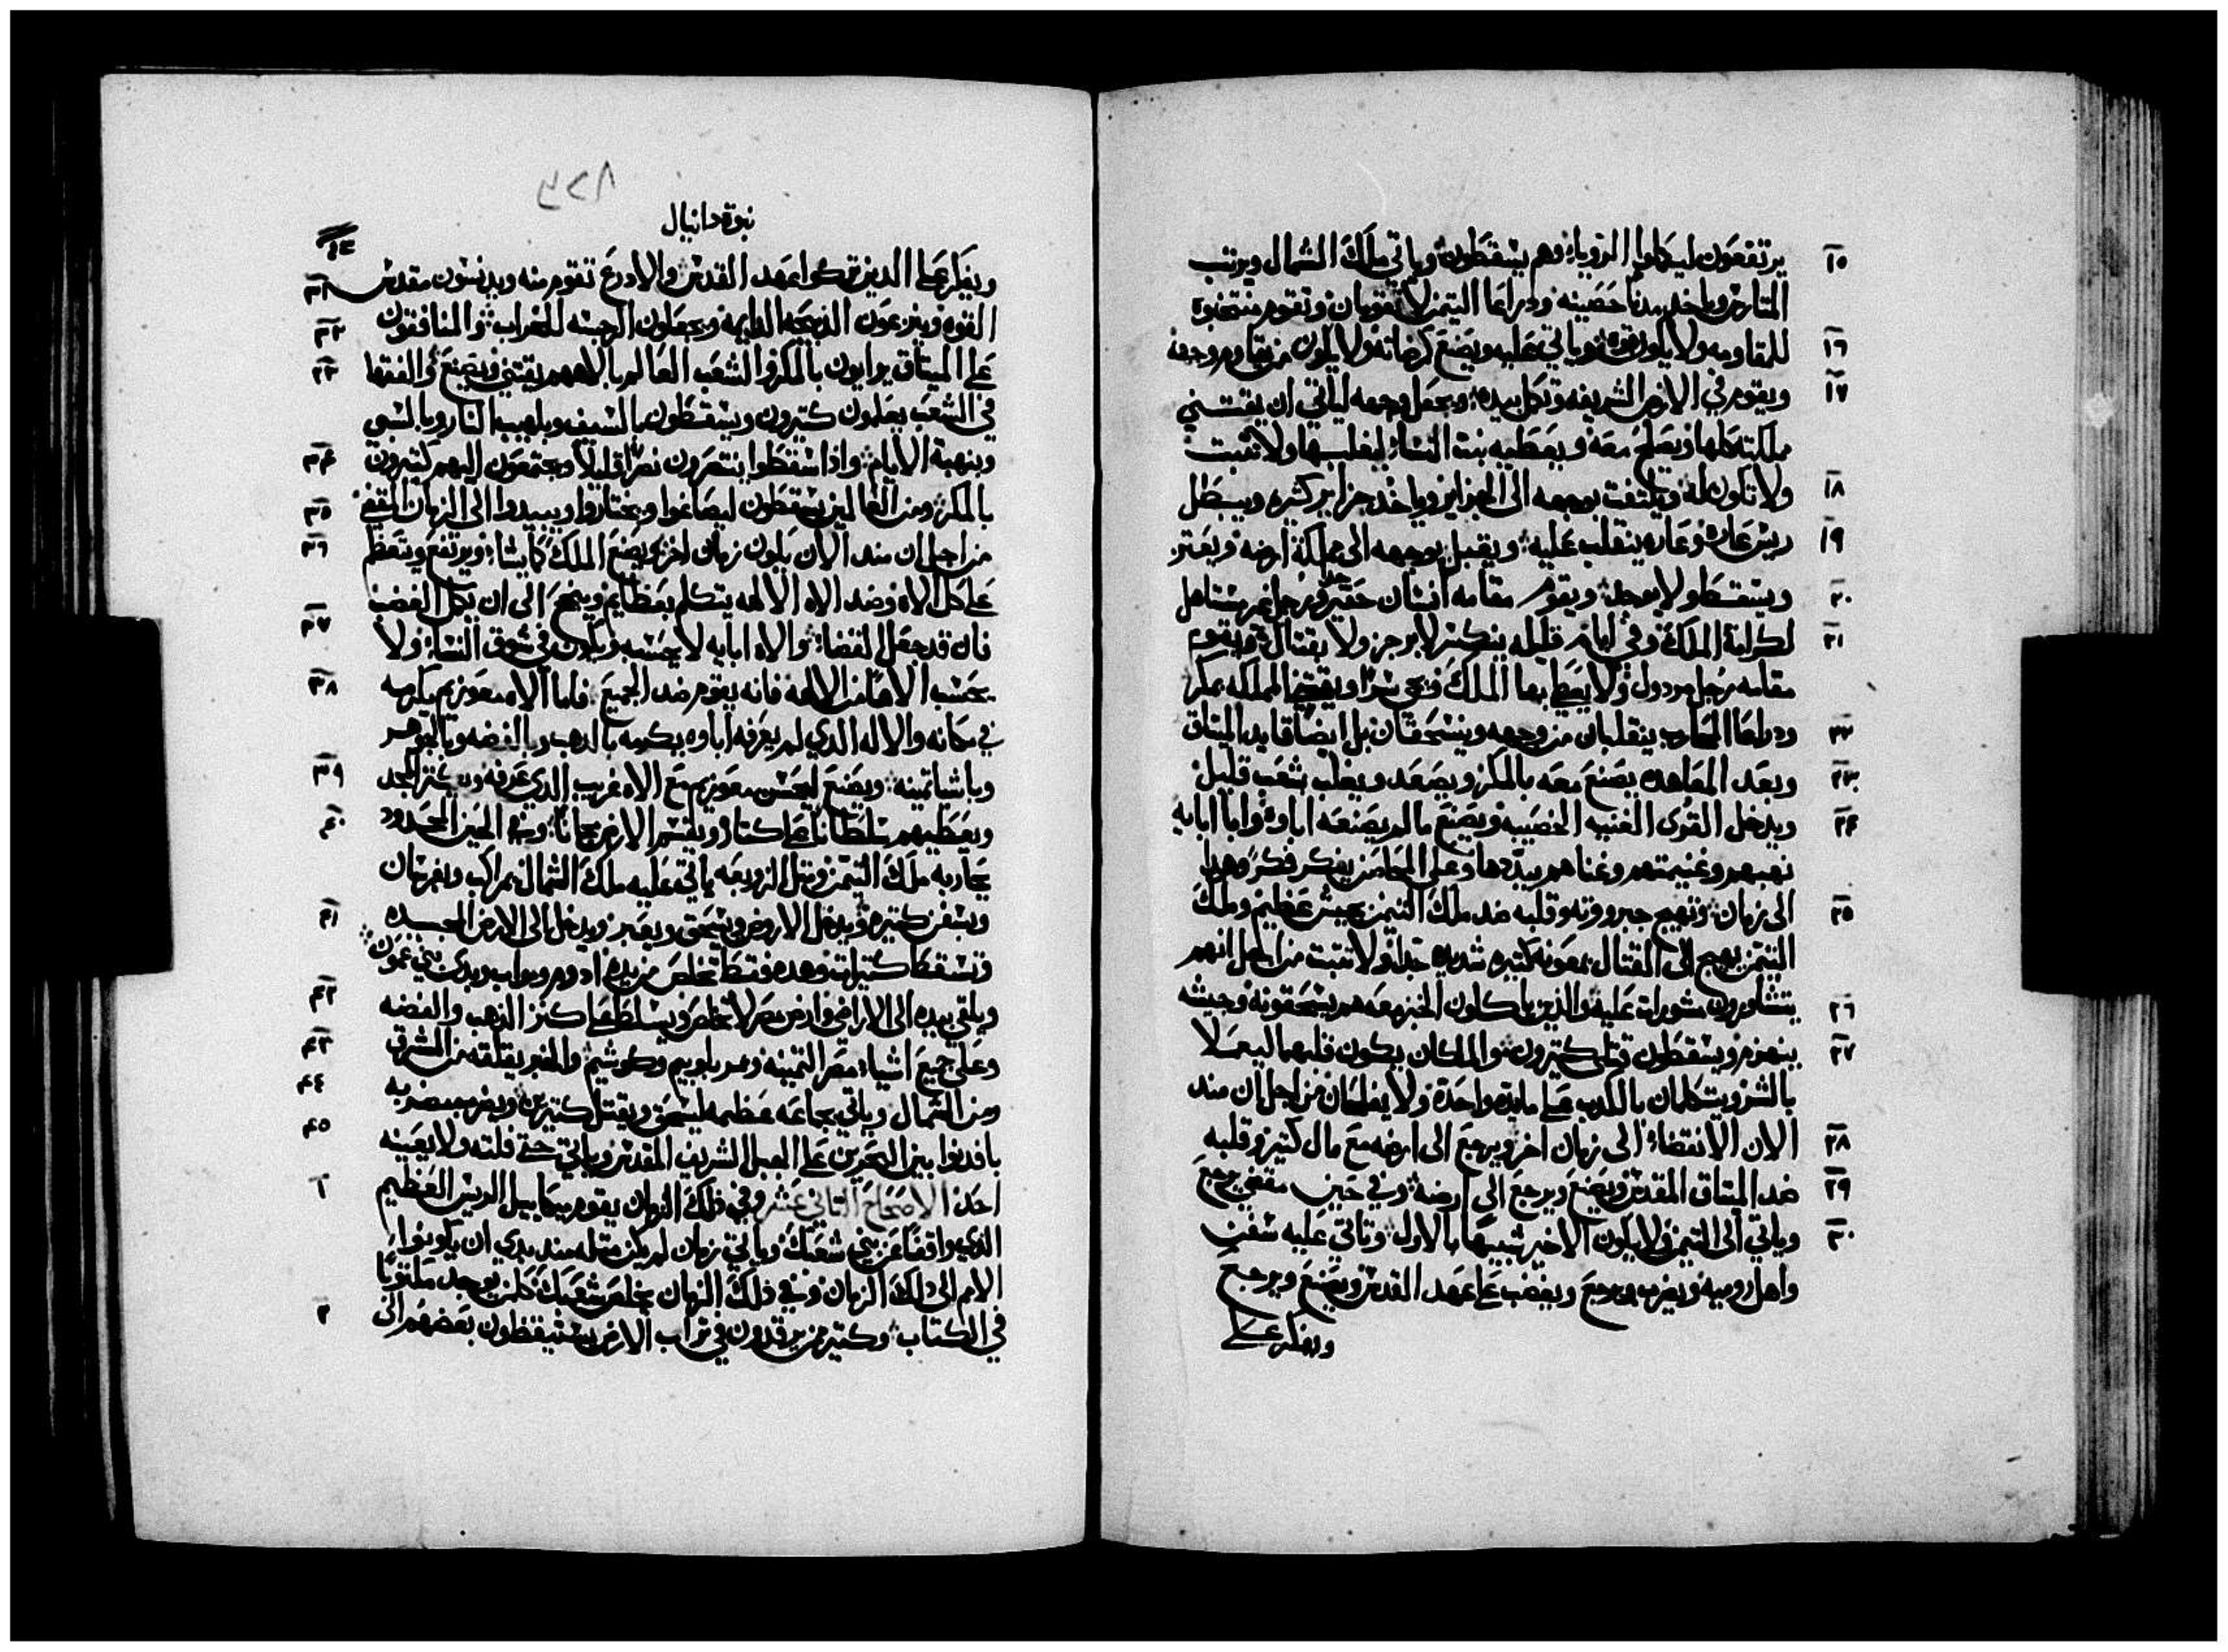 ١٥ يرتفعون ليكملوا الرويا وهم يسقطون وياتي ملك الشمال ويرتب
المتارس وياخد مدنا حصينه ودراعا التيمن لا تقومان وتقوم منتخبوه
١٦ للمقاومه ولا يكون قوه وياتي عليه ويصنع كرضاته ولا يكون من يقاوم وجهه
١٧ ويقوم في الارض الشريفه وتكمل بيده ويجعل وجهه لياتي ان يقتني
مملكته كلها ويصلح معه ويعطيه بنت النساء ليغلبها ولا تثبت
١٨ ولا تكون له ويلتفت بوجهه الى الجزاير وياخد جزاير كثيره ويبطل
١٩ ريس عاره وعاره ينقلب عليه ويقبل بوجهه الى مملكة ارضه ويعتر
٢٠ ويسقط ولا يوجد ويقوم مقامه انسان حقير وغير مستاهل
٢١ لكرامة الملك وفي ايام قليله ينكسر لا برجز ولا بقتال ويقوم
مقامه رجل مردول ولا يعطى بها الملك ويجي سرا ويقتني المملكه بمكر
٢٢ ودراعا المحارب ينقلبان من وجهه وينسحقان بل ايضا قايد الميتاق
٢٣ وبعد المعاهده يصنع معه بالمكر ويصعد ويغلب بشعب قليل
٢٤ ويدخل القرى الغنيه الخصيبه ويصنع ما لم يصنعه اباوه وابا ابايه
نهبهم وغنيمتهم وغناهم يبددها وعلى المحامز يفكر فكر وهدا
٢٥ الى زمان وتهيج جبروته وقلبه ضد ملك التيمن بجيش عظيم وملك
التيمن يهيج الى القتال بمعونه كتيره شديده جدا ولا تتبت من اجل انهم
٢٦ يتشاورون مشورات عليه والذين ياكلون الخبز معه هم يسحقونه وجيشه
٢٧ ينهزم ويسقطون قتلى كتيرون والملكان يكون قلبهما ليعملا
بالشر ويتكلمان بالكدب على مايده واحدة ولا يفلحان من اجل ان مند
٢٨ الان الانقضاء الى زمان اخر ويرجع الى ارضه مع مال كتير وقلبه
٢٩ ضد الميتاق المقدس ويصنع ويرجع الى ارضه وفي حين مقضي يرجع
٣٠ وياتي الى التيمن ولا يكون الاخير شبيها بالاول وتاتي عليه سفن
واهل روميه ويضرب ويرجع ويغضب على عهد القدس ويصنع ويرجع
ويفكر على
٣٢٨
نبوة دانيال
ويفكر على الدين تركوا عهد القدس والادرع تقوم منه ويدنسون مقدس ٣١
القوه وينزعون الذبيحه الدايمه ويجعلون الرجسه للخراب والمنافقون ٣٢
على الميتاق يرايون بالمكر والشعب العالم بالاههم يقتني ويصنع والفقها ٣٣
في الشعب يعلمون كتيرون ويسقطون بالسيف وبلهيب النار وبالسبي
وبنهبة الايام واذا سقطوا ينتصرون نصرا قليلا ويجتمعون اليهم كتيرون ٣٤
بالمكر ومن العالمين يسقطون ليصاغوا ويختاروا ويبيدوا الى الزمان المقضي ٣٥
من اجل ان مند الان يكون زمان اخر ويصنع الملك كما يشاء ويرتفع ويتعظم ٣٦
على كل الاه وضد الاه الالهه يتكلم بعظايم وينجح الى ان يكمل الغضب
فان قد جعل القضا والاه ابايه لا يحسبه ويكون في شوق النسا ولا ٣٧
يحسب الاها من الالهه فانه يقوم ضد الجميع فاما الاه معوزيم يكرمه ٣٨
في مكانه والاله الدي لم يعرفه اباوه يكرمه بالدهب وبالفضه وبالجوهر
وباشيا تمينه ويصنع ليحسن معوزيم مع الاه غريب الدي عرفه ويكتر المجد ٣٩
ويعطيهم سلطانا على كتار ويقسم الارض مجانا وفي الحين المحدود ٤٠
يحاربه ملك التيمن ومتل الزوبعه ياتي عليه ملك الشمال بمراكب وبفرسان
وبسفن كتيره ويدخل الاروض ويسحق ويعبر ويدخل الى الارض المجيده ٤١
وتسقط كتيرات وهده فقط تخلص من يده ادوم ومواب وبدي بني عمون
ويلقي بيده الى الاراضي وارض مصر لا تخلص ويسلط على كنز الذهب والفضه ٤٢
وعلى جميع اشياء مصر التمينه ويمر بلوبيم وكوشيم والخبر يقلقه من المشرق ٤٣
ومن الشمال وياتي بجماعه عظيمه ليسحق ويقتل كتيرين ويضرب مضربه ٤٤
بافدنوا بين البحرين على الجبل الشريف المقدس وياتي حتى قلته ولا يعينه ٤٥
احد الاصحاح التاني عشر وفي ذلك الزمان يقوم ميكاييل الريس العظيم ١
الدي واقفا عن بني شعبك وياتي زمان لم يكن متله مند بدي ان يكونوا
الامم الى دلك الزمان وفي ذلك الزمان يخلص شعبك كل من يوجد مكتوبا
في الكتاب وكتير ممن يرقدون في تراب الارض يستيقظون بعضهم الى ٢